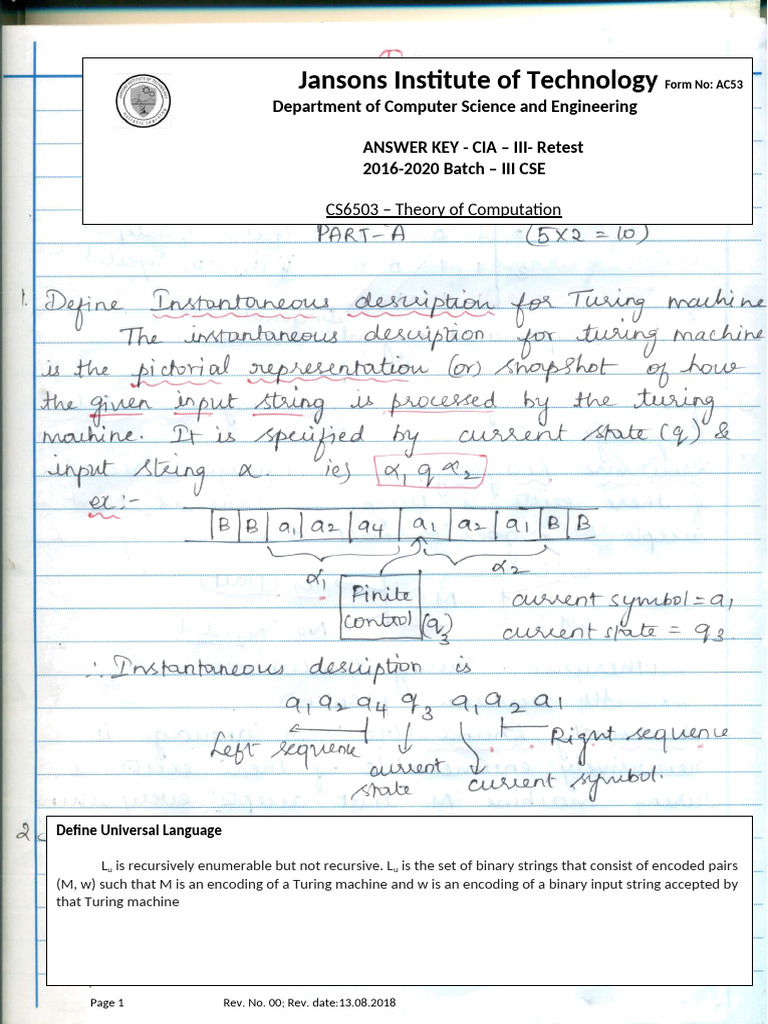 Jansons Institute of Technology Form No: AC53
Department of Computer Science and Engineering
ANSWER KEY - CIA – III- Retest
2016-2020 Batch – III CSE
CS6503 – Theory of Computation
PART-A (5x2=10)
1. Define Instantaneous description for Turing machine
The instantaneous description for turing machine
is the pictorial representation (or) snapshot of how
the given input string is processed by the turing
machine. It is specified by current state (q) &
input string α. ie) α₁ q α₂
ex:-
B B a₁ a₂ a₄ a₁ a₂ a₁ B B
α₁ α₂
Finite
control (q₃)
current symbol = a₁
current state = q₃
∴ Instantaneous description is
a₁ a₂ a₄ q₃ a₁ a₂ a₁
Left sequence Right sequence
current
state current symbol.
2.
Define Universal Language
Lᵤ is recursively enumerable but not recursive. Lᵤ is the set of binary strings that consist of encoded pairs
(M, w) such that M is an encoding of a Turing machine and w is an encoding of a binary input string accepted by
that Turing machine
Page 1 Rev. No. 00; Rev. date:13.08.2018